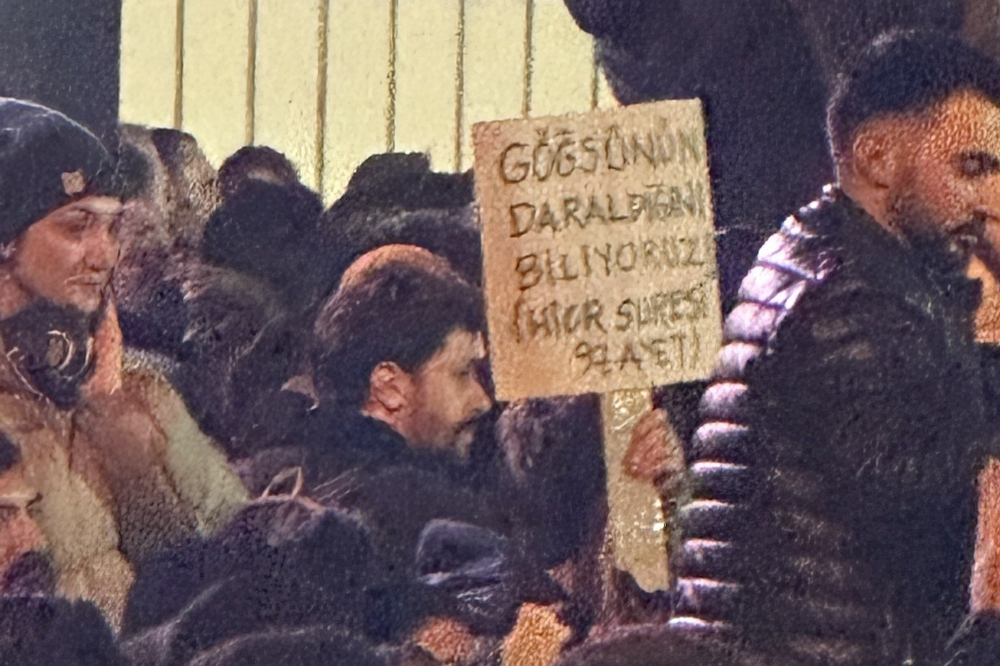 GÖĞSÜNÜN
DARALDIĞINI
BİLİYORUZ!
(HİCR SURESİ
97.AYET)